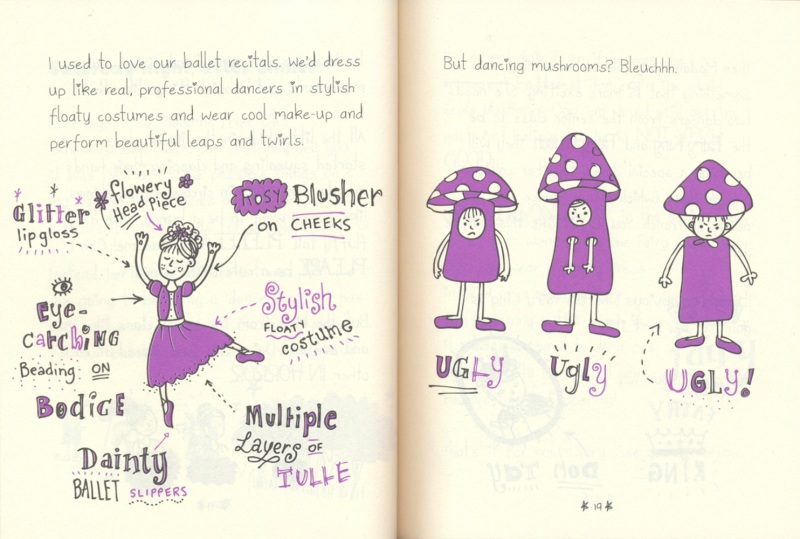 I used to love our ballet recitals. We'd dress
up like real, professional dancers in stylish
floaty costumes and wear cool make-up and
perform beautiful leaps and twirls.
Glitter
lipgloss
flowery
Headpiece
Rosy Blusher
on CHEEKS
Eye-
catching
Beading on
Bodice
Stylish
FLOATY
costume
Multiple
Layers OF
TULLE
Dainty
BALLET SLIPPERS
But dancing mushrooms? Bleuchhh.
UGLY
Ugly
UGLY!
19